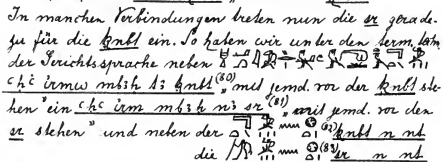 In manchen Verbindungen treten nun die sr gerade-
zu für die ḳnbt ein. So haben wir unter den term. tchn.
der Gerichtssprache neben
ꜥḥꜥ irmw m bꜣḥ tꜣ ḳnbt (80) „mit jemd. vor der ḳnbt ste-
hen" ein ꜥḥꜥ irm m bꜣḥ nꜣ sr (81) „mit jemd. vor den
sr stehen" und neben der (82) ḳnbt n nt
die (83) sr n nt